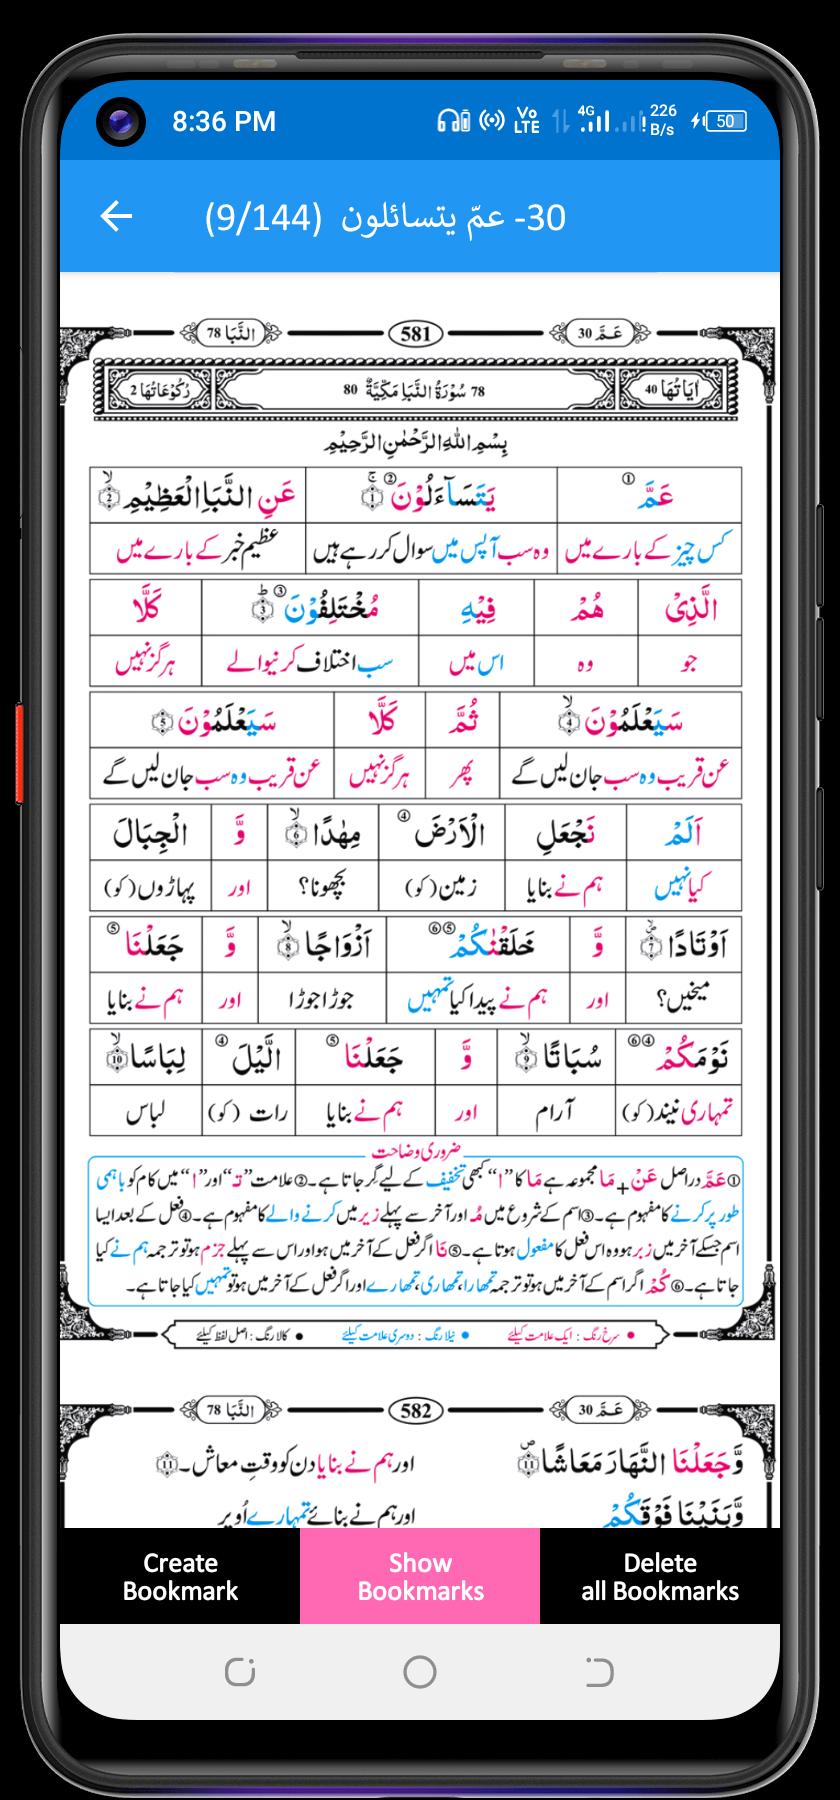 8:36 PM Vo LTE 4G 226 B/s 50
30- عمّ يتسائلون (9/144)
عَمَّ 30 581 النَّبَا 78
اٰيَاتُهَا 40 78 سُوْرَةُ النَّبَاِ مَكِّيَّةٌ 80 رُكُوْعَاتُهَا 2
بِسْمِ اللهِ الرَّحْمٰنِ الرَّحِيْمِ
عَمَّ ① يَتَسَآءَلُوْنَ ② 1 عَنِ النَّبَاِ الْعَظِيْمِ 2
کس چیز کے بارے میں وہ سب آپس میں سوال کر رہے ہیں عظیم خبر کے بارے میں
الَّذِیْ هُمْ فِيْهِ مُخْتَلِفُوْنَ ③ 3 كَلَّا
جو وہ اس میں سب اختلاف کرنیوالے ہرگز نہیں
سَيَعْلَمُوْنَ 4 ثُمَّ كَلَّا سَيَعْلَمُوْنَ 5
عن قریب وہ سب جان لیں گے پھر ہرگز نہیں عن قریب وہ سب جان لیں گے
اَلَمْ نَجْعَلِ الْاَرْضَ ④ مِهٰدًا 6 وَّ الْجِبَالَ
کیا نہیں ہم نے بنایا زمین (کو) بچھونا؟ اور پہاڑوں (کو)
اَوْتَادًا 7 وَّ خَلَقْنٰكُمْ ⑤⑥ اَزْوَاجًا 8 وَّ جَعَلْنَا ⑤
میخیں؟ اور ہم نے پیدا کیا تمہیں جوڑا جوڑا اور ہم نے بنایا
نَوْمَكُمْ ④⑥ سُبَاتًا 9 وَّ جَعَلْنَا ⑤ الَّيْلَ ④ لِبَاسًا 10
تمہاری نیند (کو) آرام اور ہم نے بنایا رات (کو) لباس
ضروری وضاحت
① عَمَّ دراصل عَنْ + مَا مجموعہ ہے مَا کا "ا" کبھی تخفیف کے لیے گر جاتا ہے۔ ② علامت "تَـ" اور "ا" میں کام کو باہمی
طور پر کرنے کا مفہوم ہے۔ ③ اسم کے شروع میں مُـ اور آخر سے پہلے زیر میں کرنے والے کا مفہوم ہے۔ ④ فعل کے بعد ایسا
اسم جسکے آخر میں زبر ہو وہ اس فعل کا مفعول ہوتا ہے۔ ⑤ نَا اگر فعل کے آخر میں ہو اور اس سے پہلے جزم ہو تو ترجمہ ہم نے کیا
جاتا ہے۔ ⑥ كُمْ اگر اسم کے آخر میں ہو تو ترجمہ تمہارا، تمہاری، تمہارے اور اگر فعل کے آخر میں ہو تو تمہیں کیا جاتا ہے۔
• سرخ رنگ : ایک علامت کیلئے • نیلا رنگ : دوسری علامت کیلئے • کالا رنگ : اصل لفظ کیلئے
عَمَّ 30 582 النَّبَا 78
وَّجَعَلْنَا النَّهَارَ مَعَاشًا 11 اور ہم نے بنایا دن کو وقتِ معاش۔ 11
وَّبَنَيْنَا فَوْقَكُمْ اور ہم نے بنائے تمہارے اُوپر
Create Bookmark Show Bookmarks Delete all Bookmarks